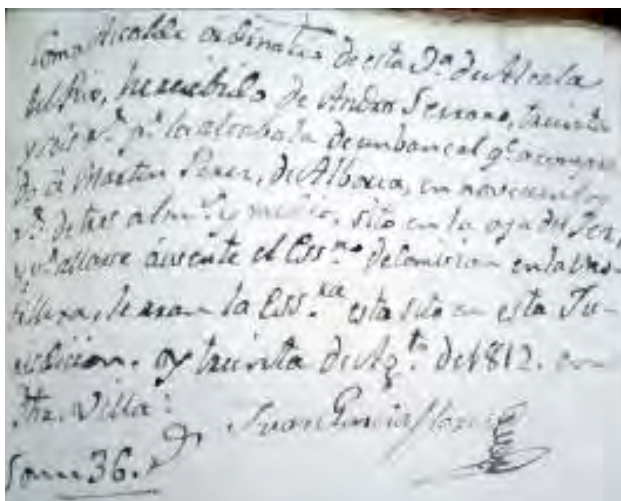 Como Alcalde ordinario de esta V.ª de Alcala
del Rio, he recibido de Andres Serrano, treinta
y seis r.s p.r la alcabala de un bancal q.e a compra
do à Martin Perez, de Alboxa, en novecientos
r.s de tres alm.s y medio, sito en la oja de
ausente el Ess.no de Comision en la
la Ess.ra esta sito en esta Ju-
risdicion. oy treinta de Ag.to de 1812. en
dha. Villa:
Juan Garcia
Son 36. r.s